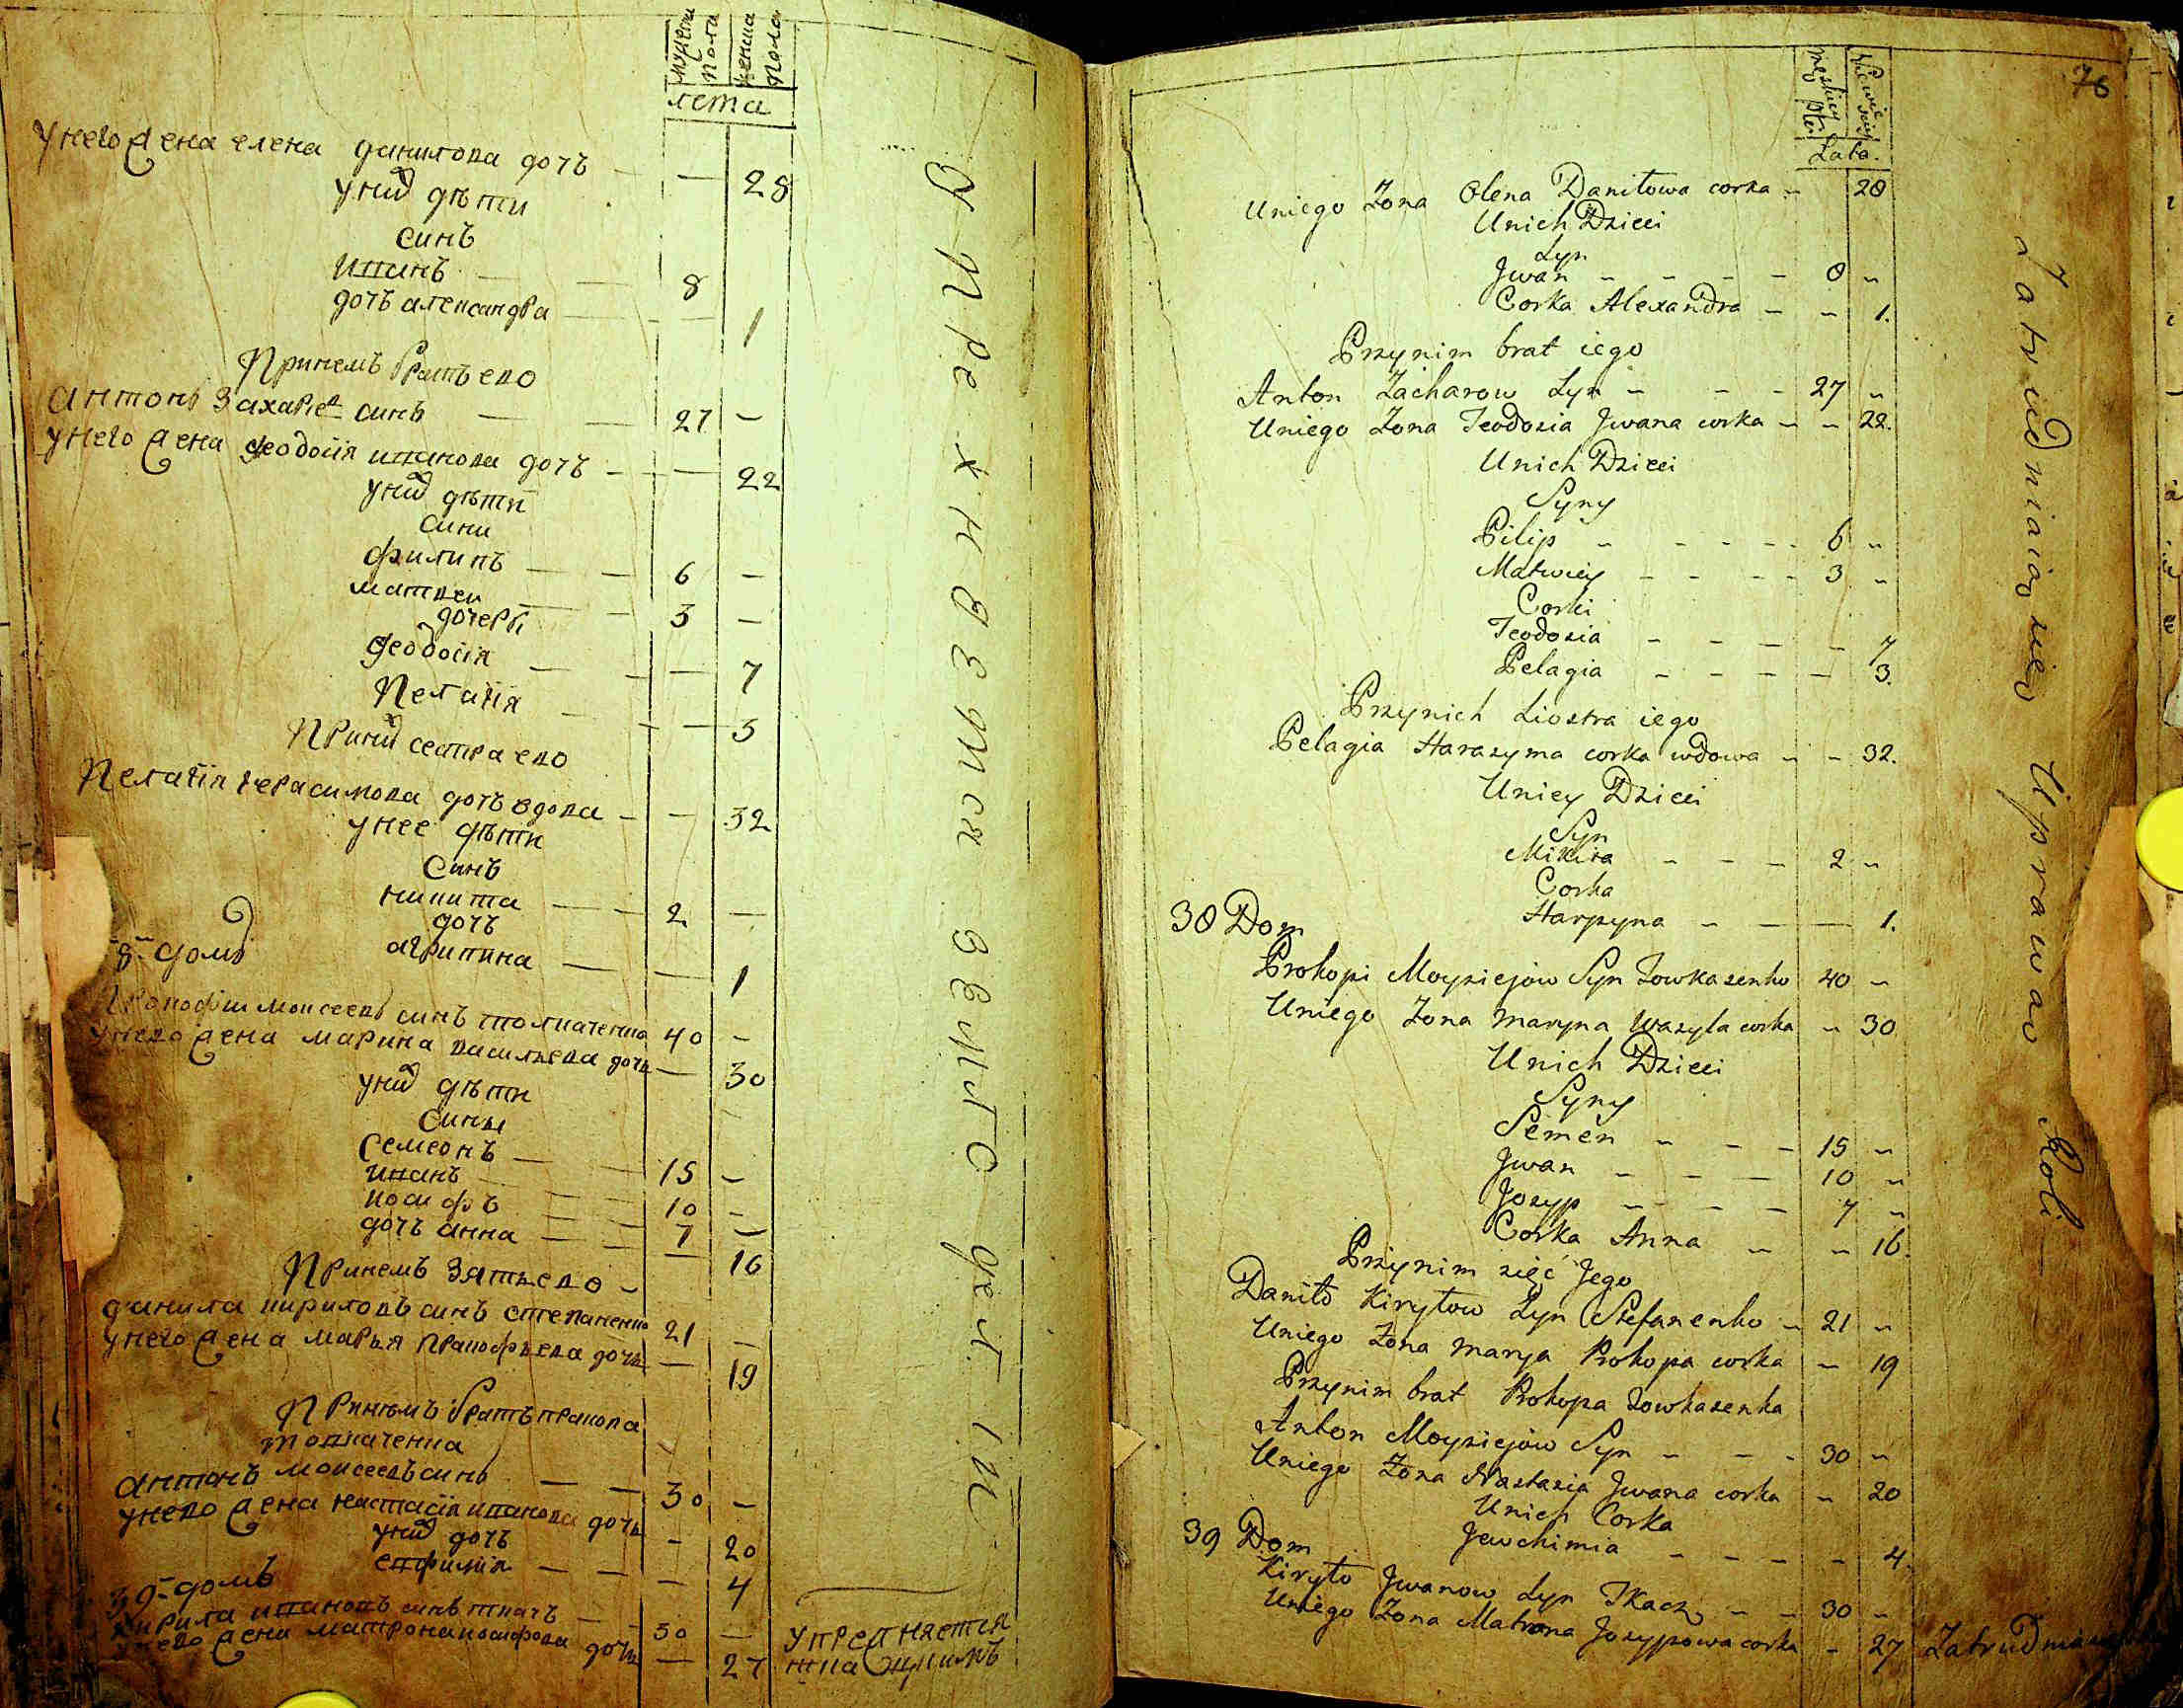 мужеска пола
женска пола
лета
у него жена елена данилова дочъ — — 28
у них дѣти
синъ
иванъ — — 8
дочъ александра — — 1
При немъ братъ ево
антонъ Захариев синъ — — 27 —
у него жена феодосїя иванова дочъ — — 22
у них дѣти
сини
филипъ — — 6 —
матвеи — — 3 —
дочери
феодосїя — — — 7
Пелагїя — — — 3
При них сестра ево
Пелагїя герасимова дочъ вдова — — 32
у нее дѣти
Синъ
никита — — 2 —
дочъ
агрипина — — 1
8 домъ
Пракофии моисеевъ синъ товкаченко 40 —
у нево жена марина васильева дочь — 30
у них дѣти
Сины
Семеонъ — — 15 —
иванъ — — 10 —
иосифъ — — 7 —
дочъ анна — — — 16
При немъ зять ево
данила кириловъ синъ степаненко 21 —
у него жена марья Пракофьева дочь — 19
При немъ братъ пракопа
товкаченка
антонъ моисеевъ синъ — — 30 —
у нево жена настасїя иванова дочь — 20
у них дочъ
евфимїя — — — 4
39 домъ
кирила ивановъ синъ ткачъ — 30 —
у нево жена матрона иосифова дочь — 27
упражняется
76
męskiey płci
Lata.
Uniego Zona Olena Daniłowa corka – 28
Unich Dzieci
Syn
Jwan – – – – 8 –
Corka Alexandra – – 1.
Przynim brat iego
Anton Zacharow Syn – – – 27 –
Uniego Zona Teodozia Jwana corka – – 22.
Unich Dzieci
Syny
Pilip – – – – 6 –
Matwiey – – – – 3 –
Corki
Teodozia – – – – 7
Pelagia – – – – 3.
Przynich Siostra iego
Pelagia Harazyma corka wdowa – – 32.
Uniey Dzieci
Syn
Mikita – – – 2 –
Corka
Harpyna – – – 1.
38 Dom
Prokopi Moyziejow Syn Towkazenko 40 –
Uniego Zona Maryna Wazyla corka – 30
Unich Dzieci
Syny
Semen – – – 15 –
Jwan – – – 10 –
Jozyp – – – 7 –
Corka Anna – – 16.
Przynim zięć Jego
Daniło Kiryłow Syn Stefanenko – 21 –
Uniego Zona Marya Prokopa corka – 19
Przynim brat Prokopa Towkazenka
Anton Moyziejow Syn – – – 30 –
Uniego Zona Nastazia Jwana corka – 20
Unich Corka
Jewchimia – – – – 4.
39 Dom
Kiryło Jwanow Syn Tkacz – – 30 –
Uniego Zona Matrona Jozypowa corka – 27
Uprawą Roli